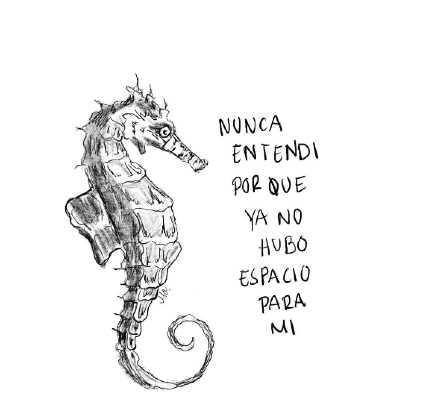 NUNCA
ENTENDI
PORQUE
YA NO
HUBO
ESPACIO
PARA
MI